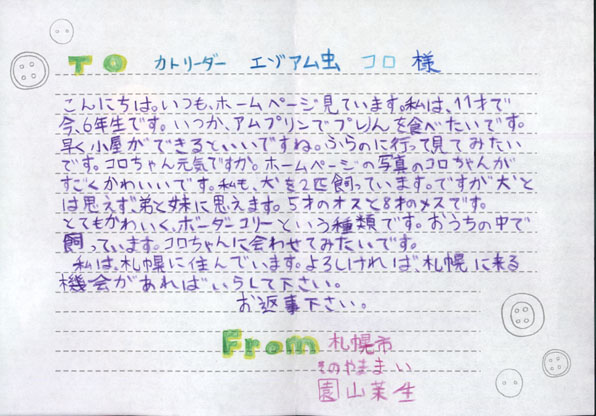 TO カトリーダー エゾアム虫 コロ 様
こんにちは。いつも、ホームページ見ています。私は、11才で
今、6年生です。いつか、アムプリンでプリンを食べたいです。
早く小屋ができるといいですね。ふらのに行って見てみたい
です。コロちゃん元気ですか。ホームページの写真のコロちゃんが
すごくかわいいです。私も、犬を2匹飼っています。ですが犬と
は思えず、弟と妹に思えます。5才のオスと8才のメスです。
とてもかわいく、ボーダーコリーという種類です。おうちの中で
飼っています。コロちゃんに会わせてみたいです。
私は、札幌に住んでいます。よろしければ、札幌に来る
機会があればいらして下さい。
お返事下さい。
From 札幌市
そのやま まい
園山茉生